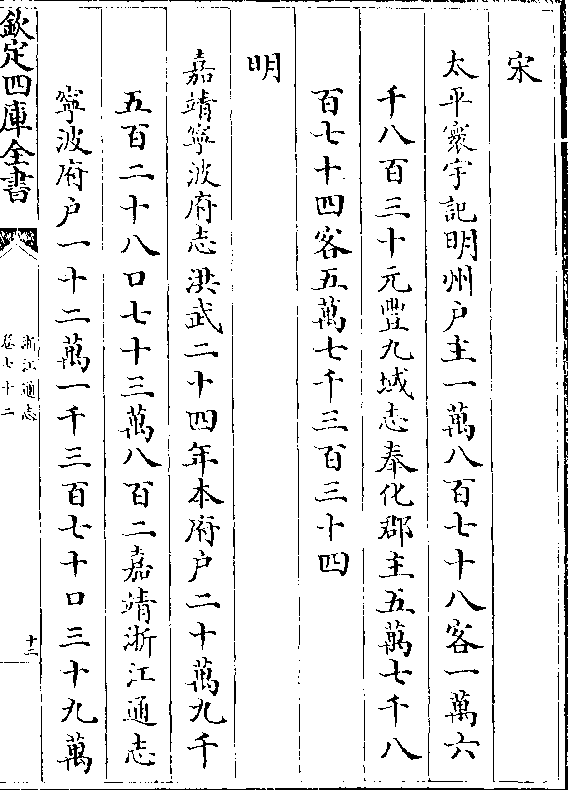 宋
太平寰宇記明州户主一萬八百七十八客一萬六
千八百三十元豐九域志奉化郡主五萬七千八
百七十四客五萬七千三百三十四
明
嘉靖寧波府志洪武二十四年本府户二十萬九千
五百二十八口七十三萬八百二嘉靖浙江通志
寧波府户一十二萬一千三百七十口三十九萬
欽定四庫全書
浙江通志
卷七十二
十二